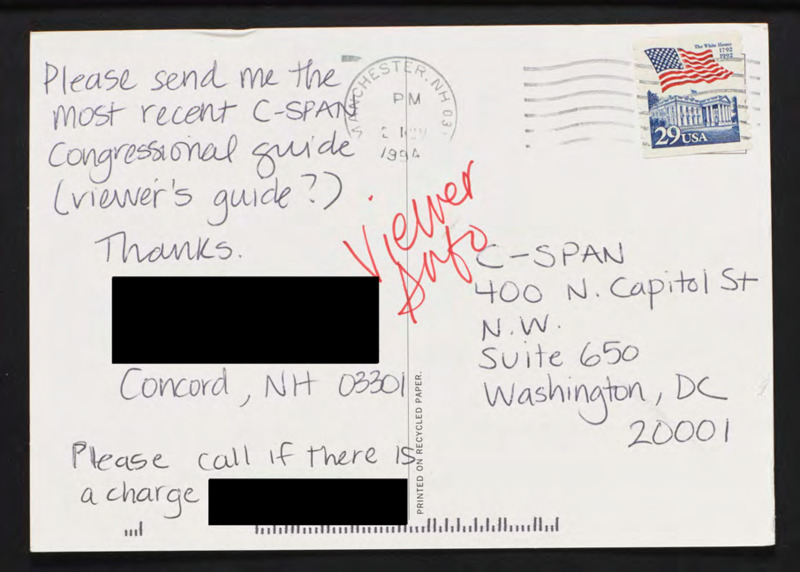 Please send me the
most recent C-SPAN
Congressional guide
(viewer's guide?)
Thanks.
Concord, NH 03301
Please call if there is
a charge
MANCHESTER, NH 031
PM
1994
The White House
1792
1992
29 USA
Viewer
Info
C-SPAN
400 N. Capitol St
N.W.
Suite 650
Washington, DC
20001
PRINTED ON RECYCLED PAPER.